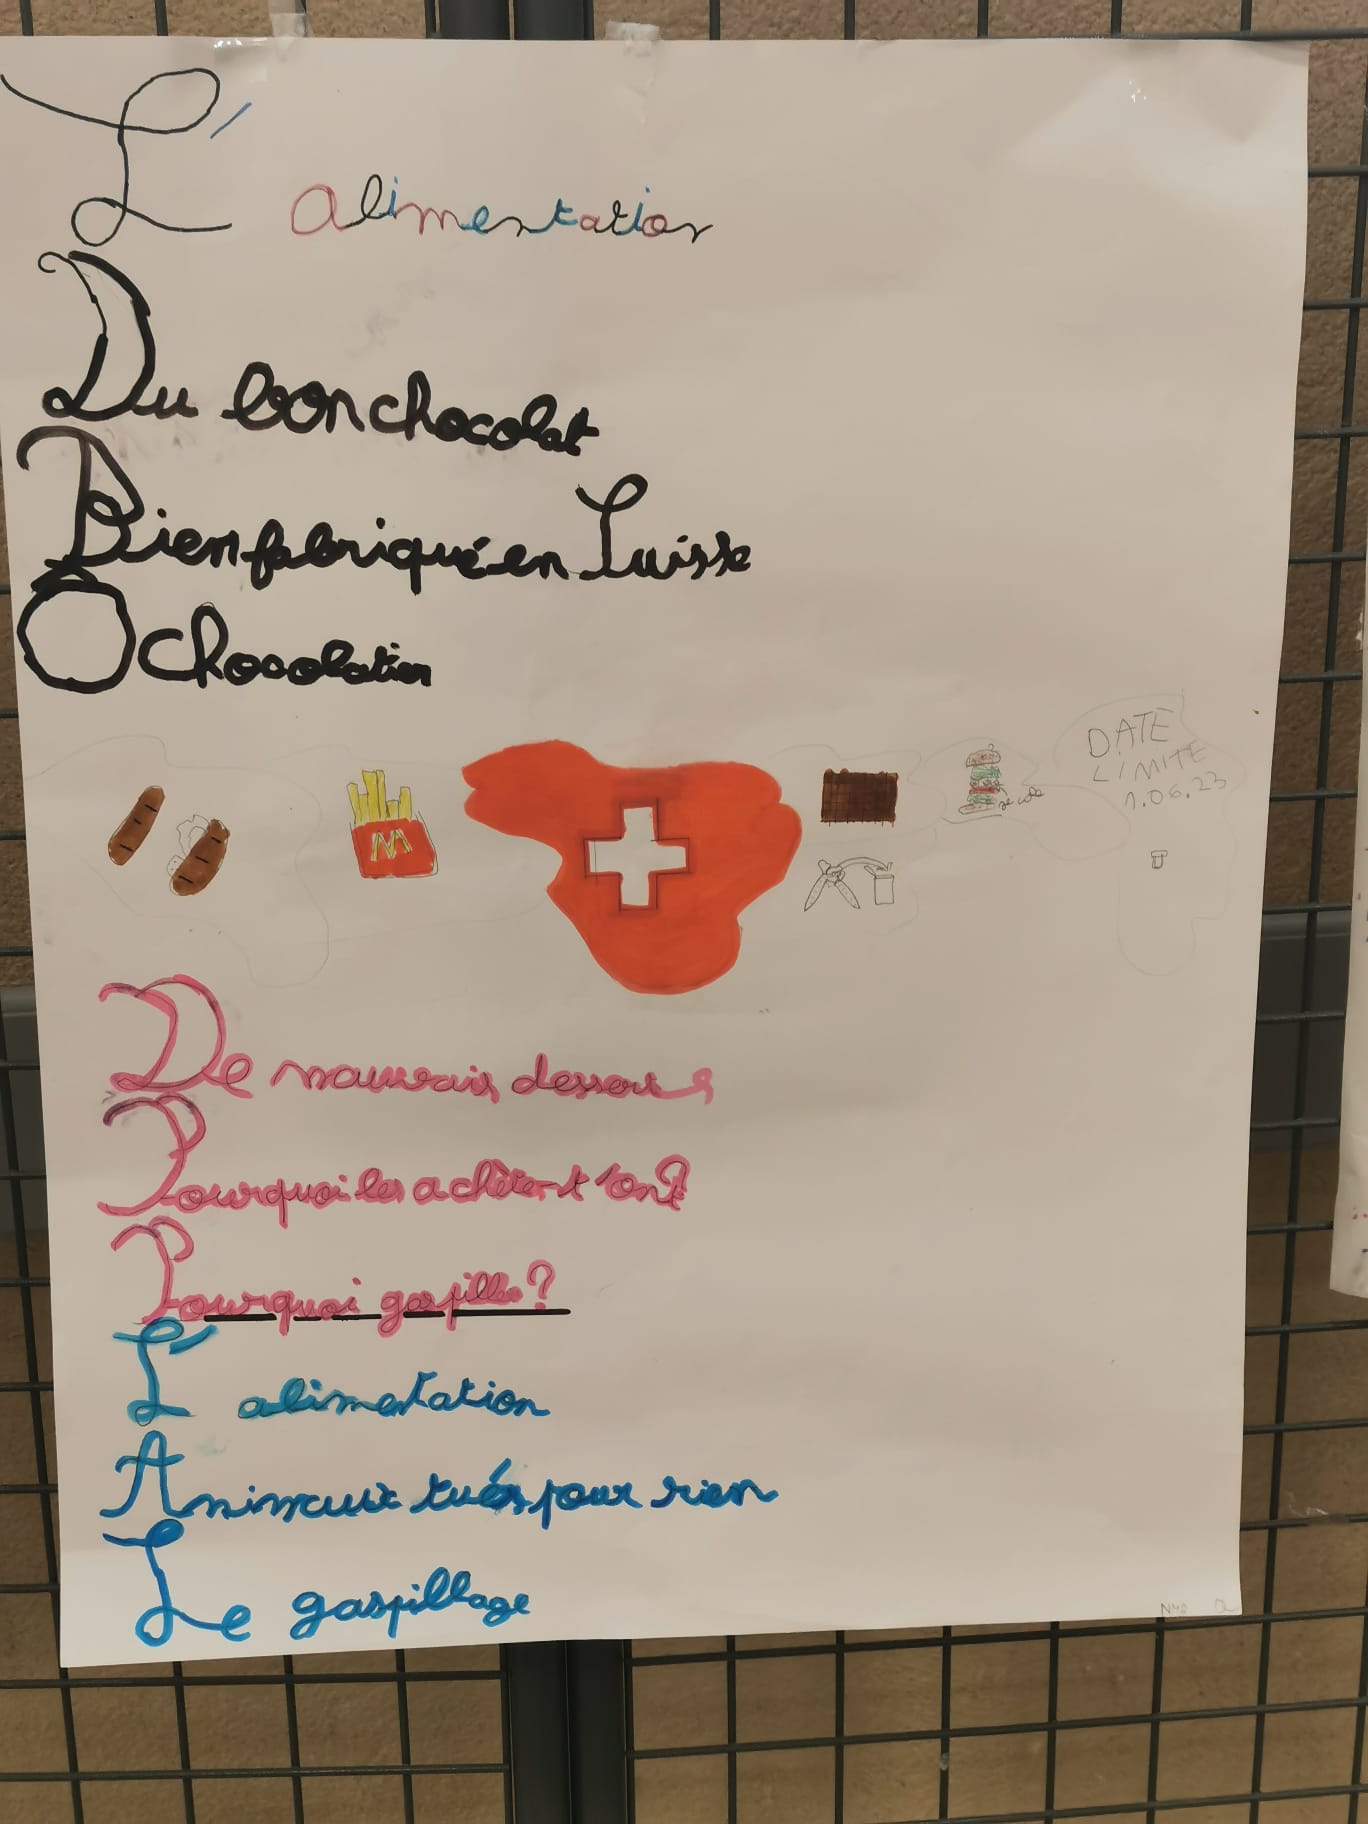 L'alimentation
Du bon chocolat
Bien fabriqué en Suisse
Ô chocolatier
M
DATE
LIMITE
1.06.23
De mauvais dessous
Pourquoi les achète-t'on?
Pourquoi gaspiller?
L'alimentation
Animaux tués pour rien
Le gaspillage